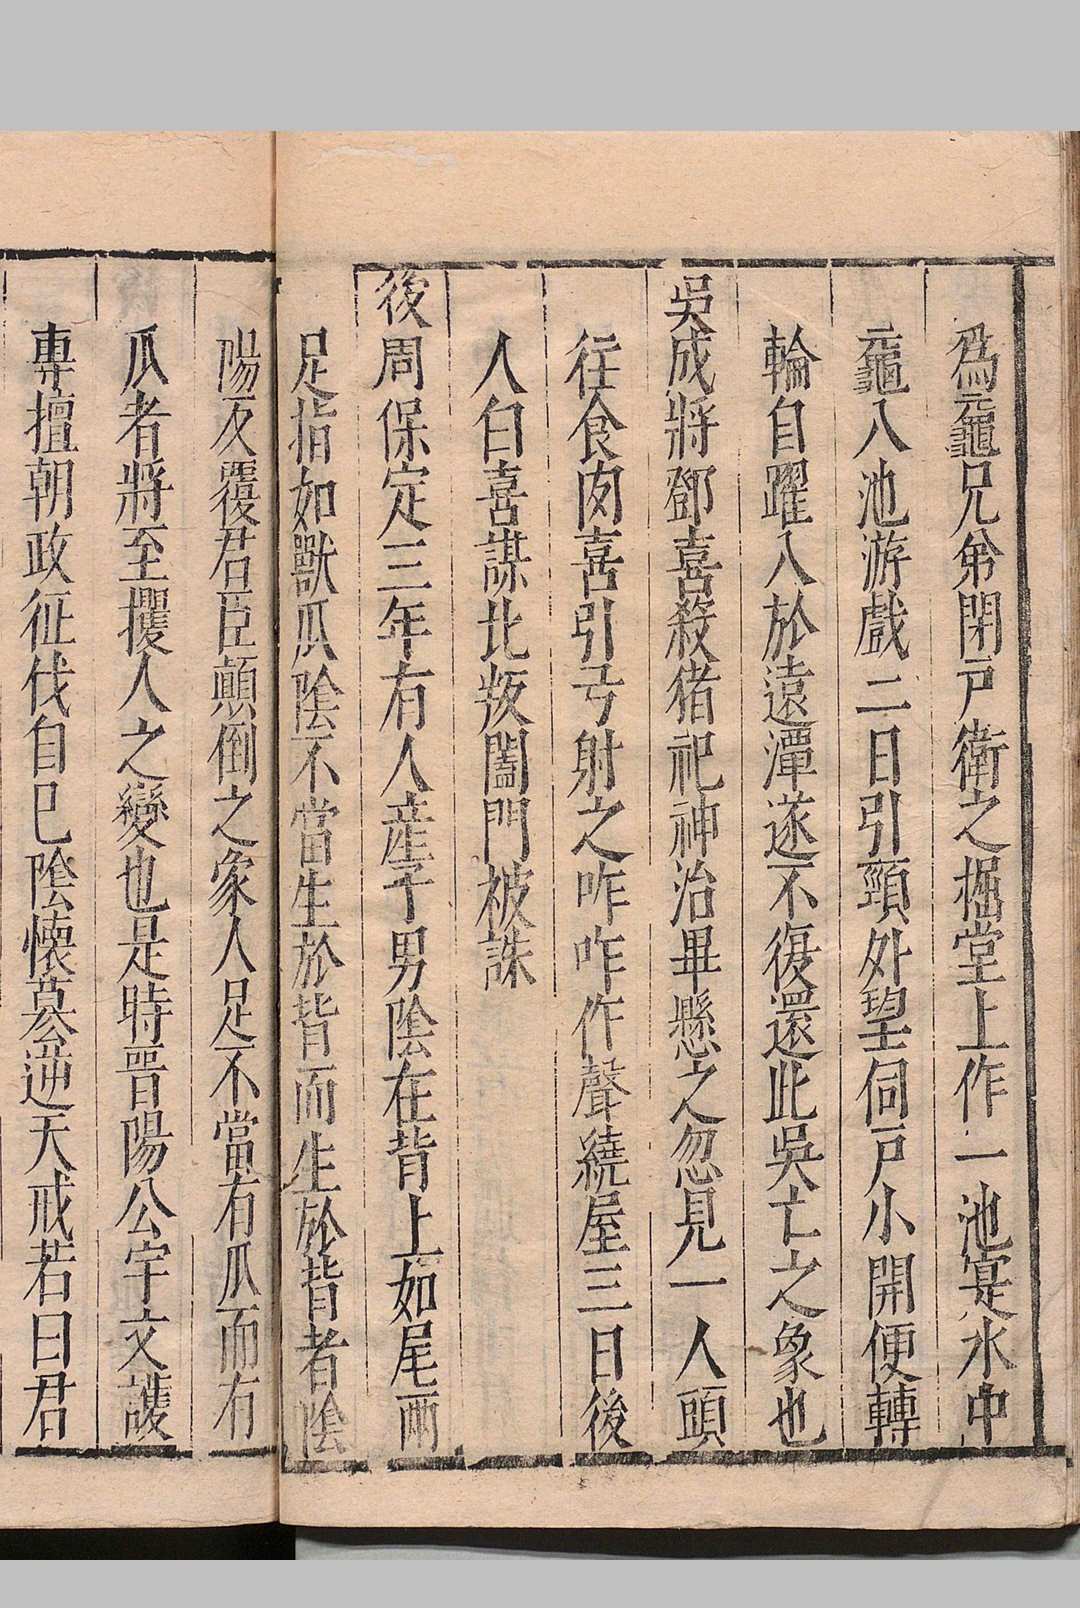 為黿兄弟閉戸衛之掘堂上作一池寔水中
黿入池游戲二日引頸外望伺戸小開便轉
輪自躍入於遠潭遂不復還此吳亡之象也
吳戍將鄧喜殺猪祀神治畢懸之忽見一人頭
往食肉喜引弓射之咋咋作聲繞屋三日後
人白喜謀北叛闔門被誅
後周保定三年有人産子男陰在背上如尾兩
足指如獸爪陰不當生於背而生於背者陰
陽反覆君臣顛倒之象人足不當有爪而有
爪者將至攫人之變也是時晉陽公宇文護
專擅朝政征伐自己陰懷篡逆天戒若曰君